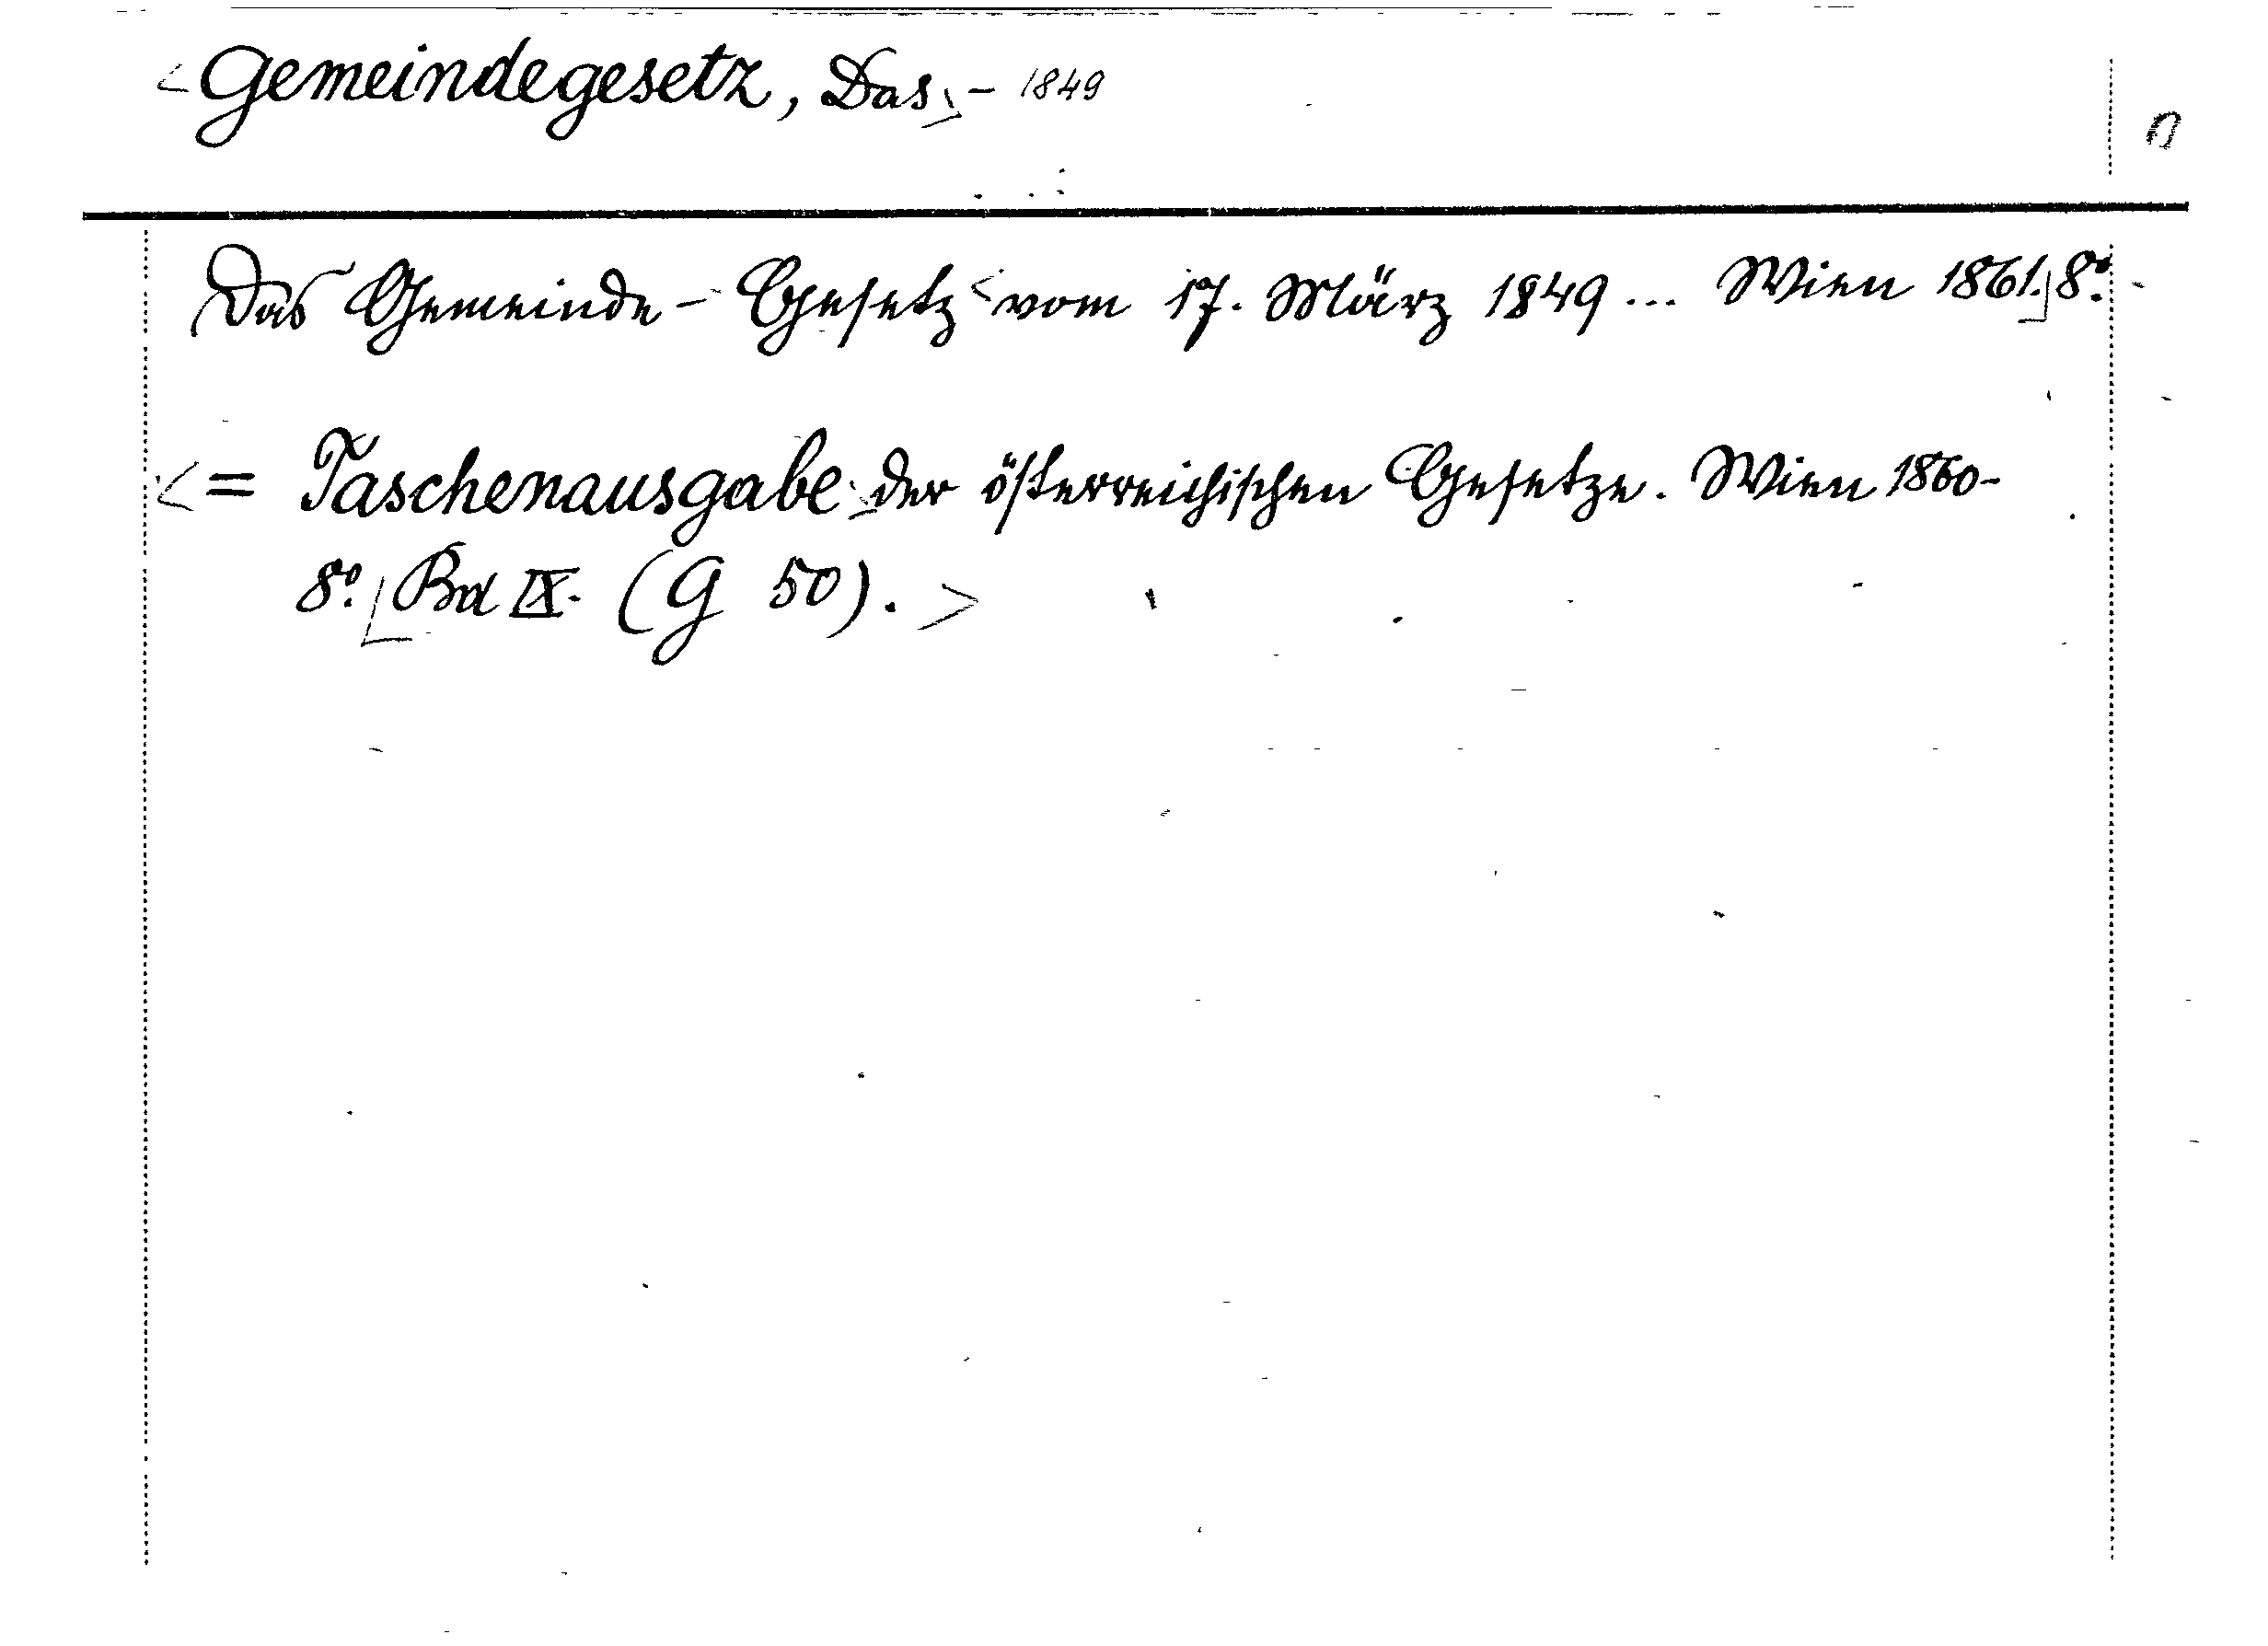 <Gemeindegesetz, Das,> - 1849
Das Gemeinde-Gesetz <vom 17. März 1849 ... Wien 1861.] 8º.
<= Taschenausgabe> der österreichischen Gesetze. Wien 1860-
8º. [Bd IX. (G 50). >